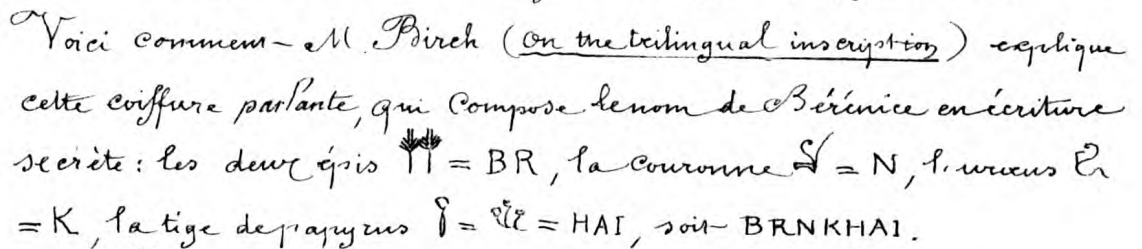 Voici comment M. Birch (on the trilingual inscription) explique
cette coiffure parlante, qui compose le nom de Bérénice en écriture
secrète : les deux épis = BR, la couronne = N, l'uraeus
= K, la tige de papyrus = = HAI, soit BRNKHAI.